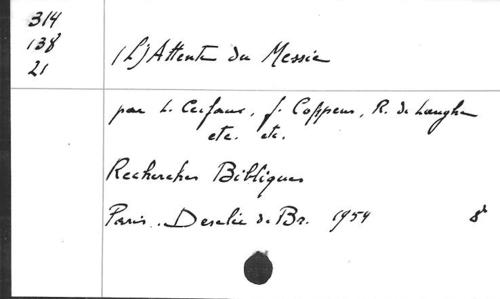 314
138
21
(L') Attente du Messie
par L. Cerfaux, J. Coppens, R. de Langhe
etc. etc.
Recherches Bibliques
Paris. Desclée de Br. 1954 8°